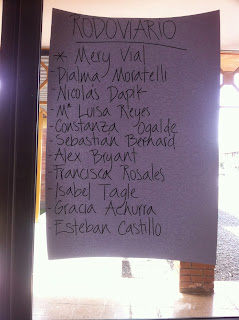 RODOVIARIO
* Mery Vial
- Djalma Moratelli
- Nicolás Dapik
- Mª Luisa Reyes
- Constanza Ogalde
- Sebastian Bernard
- Alex Bryant
- Francisca Rosales
- Isabel Tagle
- Gracia Achurra
- Esteban Castillo